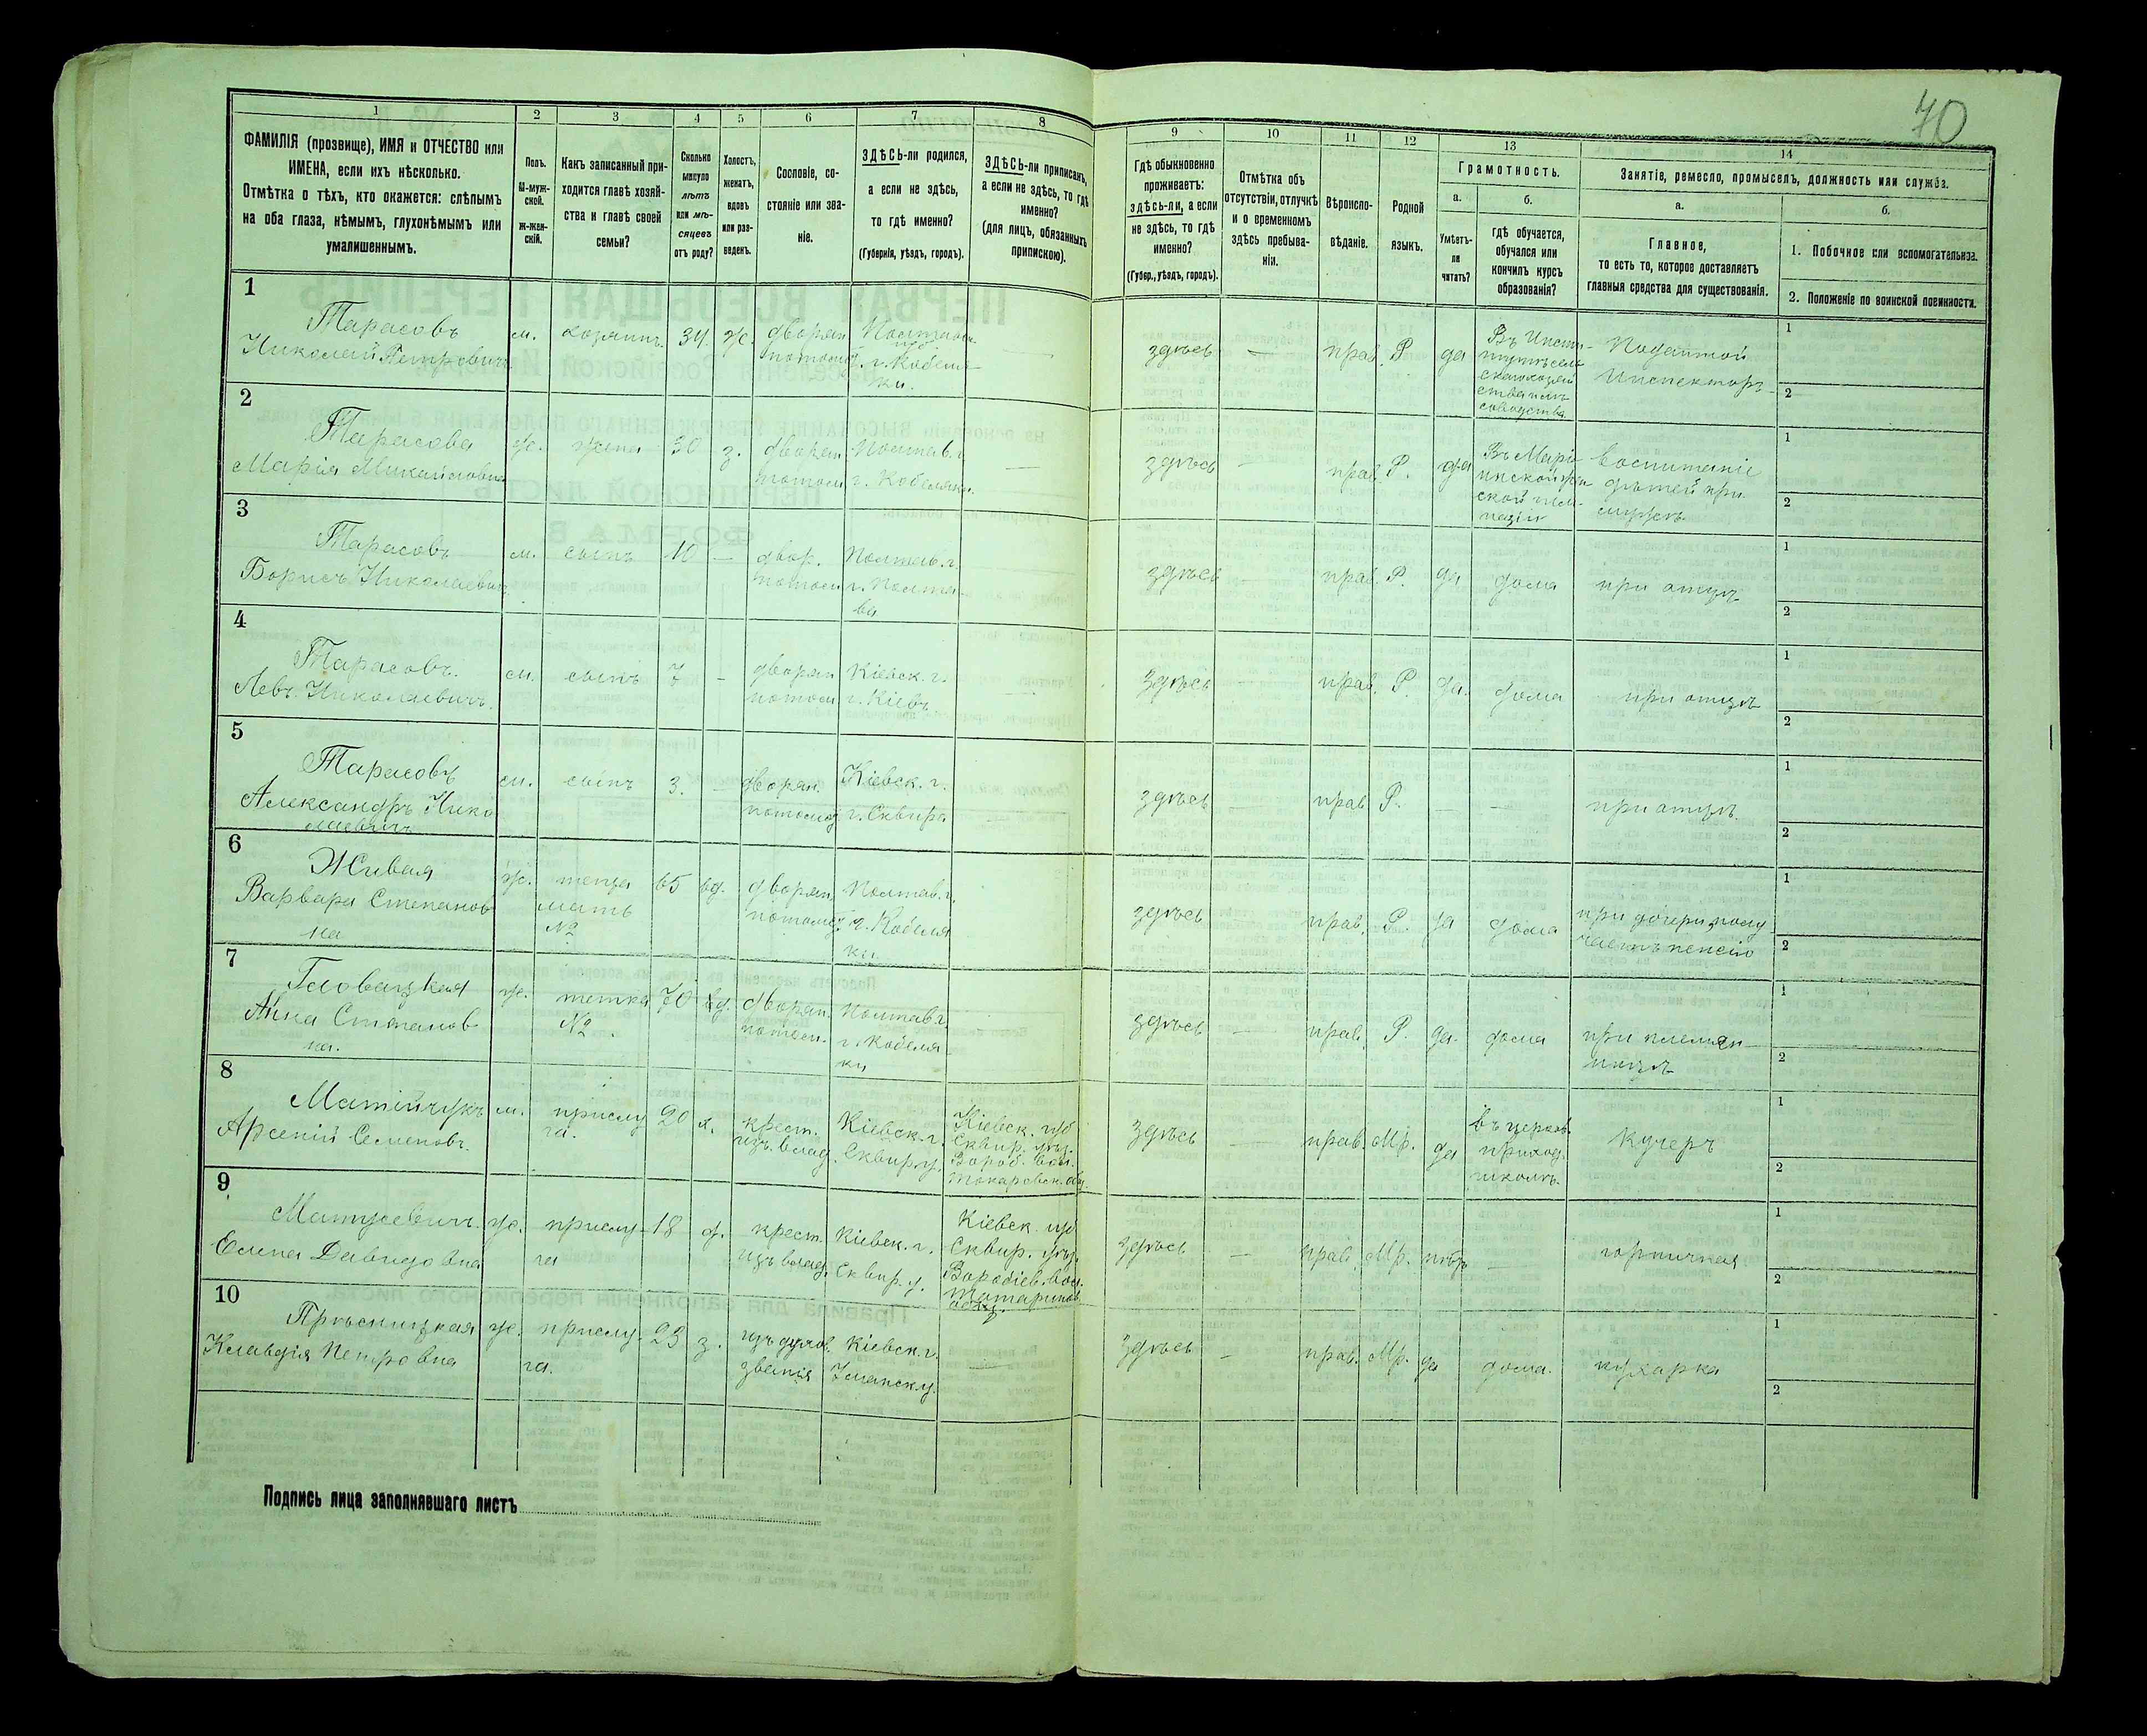 70
1
2
3
4
5
6
7
8
9
10
11
12
13
14
ФАМИЛІЯ (прозвище), ИМЯ и ОТЧЕСТВО или
ИМЕНА, если ихъ нѣсколько.
Отмѣтка о тѣхъ, кто окажется: слѣпымъ
на оба глаза, нѣмымъ, глухонѣмымъ или
умалишеннымъ.
Полъ.
М-муж-
ской.
ж-жен-
скій.
Какъ записанный при-
ходится главѣ хозяй-
ства и главѣ своей
семьи?
Сколько
минуло
лѣтъ
или мѣ-
сяцевъ
отъ роду?
Холостъ,
женатъ,
вдовъ
или раз-
веденъ.
Сословіе, со-
стояніе или зва-
ніе.
ЗДѢСЬ-ли родился,
а если не здѣсь,
то гдѣ именно?
(Губернія, уѣздъ, городъ).
ЗДѢСЬ-ли приписанъ,
а если не здѣсь, то гдѣ
именно?
(для лицъ, обязанныхъ
припискою).
Гдѣ обыкновенно
проживаетъ:
здѣсь-ли, а если
не здѣсь, то гдѣ
именно?
(Губер., уѣздъ, городъ).
Отмѣтка объ
отсутствіи, отлучкѣ
и о временномъ
здѣсь пребыва-
ніи.
Вѣроиспо-
вѣданіе.
Родной
языкъ.
Грамотность.
а.
Умѣетъ-
ли
читать?
б.
гдѣ обучается,
обучался или
кончилъ курсъ
образованія?
Занятіе, ремесло, промыселъ, должность или служба.
а.
Главное,
то есть то, которое доставляетъ
главныя средства для существованія.
б.
1. Побочное или вспомогательное.
2. Положеніе по воинской повинности.
1
Тарасовъ
Николай Петровичъ
м.
хозяинъ
34
ж.
дворян.
потом.
г. Кобеля-
ки.
—
здѣсь
—
прав.
Р.
да
Въ Инсти-
Податной
Инспекторъ
1
2
2
Тарасова
Марія Михайловна
ж.
жена
30
з.
дворян.
потом.
Полтав. г.
г. Кобеляки.
—
здѣсь
—
прав.
Р.
да
Въ Марі-
инской жен-
ской гим-
назіи
Воспитаніе
дѣтей при
мужѣ
1
2
3
Тарасовъ
Борисъ Николаевичъ
м.
сынъ
10
—
двор.
потом.
Полтав. г.
г. Полта-
ва
здѣсь
прав.
Р.
да
дома
при отцѣ
1
2
4
Тарасовъ
Левъ Николаевичъ.
м.
сынъ
7
-
дворян
потом
Кіевск. г.
г. Кіевъ
—
здѣсь
—
прав.
Р.
да.
дома
при отцѣ
1
2
5
Тарасовъ
Александръ Нико
лаевичъ
м.
сынъ
3.
—
дворян.
потом.
Кіевск. г.
г. Сквира
—
здѣсь
—
прав.
Р.
—
—
при отцѣ.
1
2
6
Живая
Варвара Степанов
на
ж.
теща
мать
№2
65
вд.
дворян.
потом.
Полтав. г.
г. Кобеля
ки.
здѣсь
прав.
Р.
да
дома
при дочери, полу
чаетъ пенсію
1
2
7
Головацкая
Анна Степанов
на.
ж.
тетка
№2.
70
вд.
дворян.
потом.
Полтав. г.
г. Кобеля
ки
здѣсь
—
прав.
Р.
да.
дома
при племян
ницѣ
1
2
8
Матійчукъ
Арсеній Семеновъ.
м.
прислу
га.
20
х.
крест.
изъ влад.
Кіевск. г.
Сквир. у.
Кіевск. губ
Сквир. уѣз.
Вороб. вол.
Токаревск. об.
здѣсь
—
прав.
Мр.
да
въ церков.
приход.
школѣ.
Кучеръ
1
2
9
Матусевичъ.
Елена Давидовна
ж.
прислу-
га
18
д.
крест.
изъ влад.
Кіевск. г.
Сквир. у.
Кіевск. губ
Сквир. уѣз.
Воробіев. вол.
общ.
здѣсь
—
прав.
Мр.
нѣтъ
—
горничная
1
2
10
Прѣсницкая
Клавдія Петровна
ж.
прислу-
га.
23
з.
изъ духов.
званія
Кіевск. г.
Уманск. у.
—
здѣсь
—
прав.
Мр.
да
дома.
кухарка
1
2
Подпись лица заполнявшаго листъ